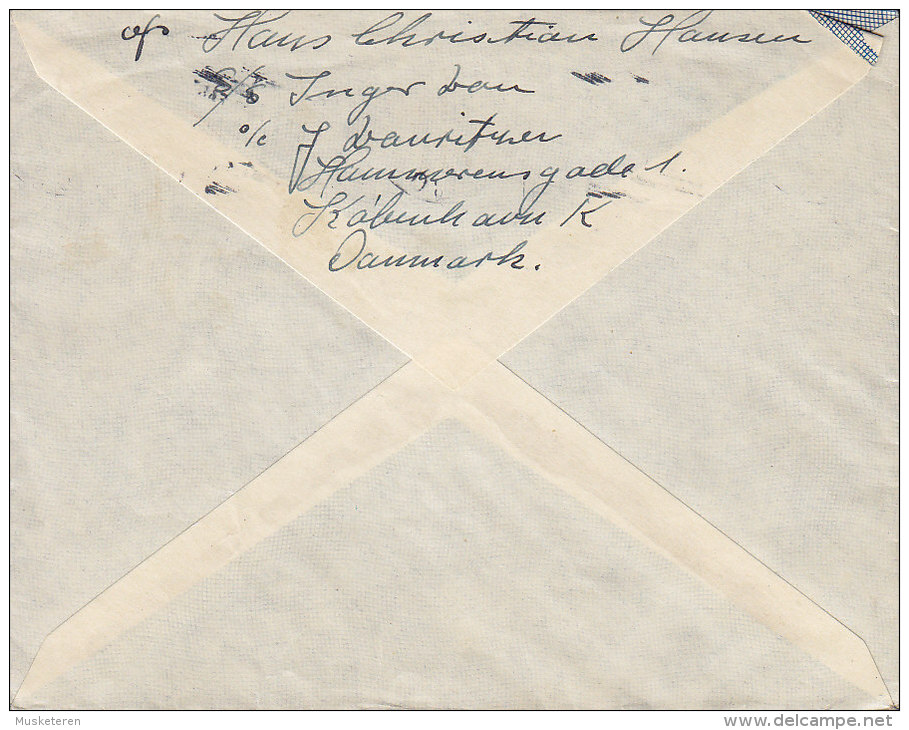 afs Hans Christian Hansen
Inger
o/c J Lauritzen
Hammerensgade 1.
København K
Danmark.
Musketeren
www.delcampe.net